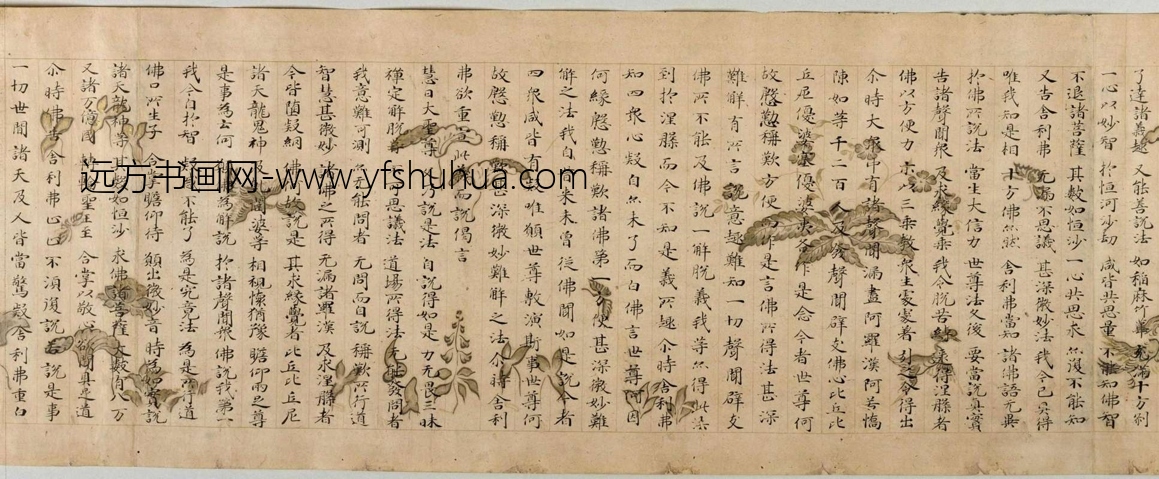 了達諸義趣 又能善說法 如稻麻竹葦 充滿十方剎
一心以妙智 於恒河沙劫 咸皆共思量 不能知佛智
不退諸菩薩 其數如恒沙 一心共思求 亦復不能知
又告舍利弗 无漏不思議 甚深微妙法 我今已具得
唯我知是相 十方佛亦然 舍利弗當知 諸佛語无異
於佛所說法 當生大信力 世尊法久後 要當說真實
告諸聲聞眾 及求緣覺乘 我令脫苦縛 逮得涅槃者
佛以方便力 示以三乘教 眾生處處著 引之令得出
尒時大眾中有諸聲聞漏盡阿羅漢阿若憍
陳如等千二百人及發聲聞辟支佛心比丘比
丘尼優婆塞優婆夷各作是念今者世尊何
故慇懃稱歎方便而作是言佛所得法甚深
難解有所言說意趣難知一切聲聞辟支
佛所不能及佛說一解脫義我等亦得此法
到於涅槃而今不知是義所趣尒時舍利弗
知四眾心疑自亦未了而白佛言世尊何因
何緣慇懃稱歎諸佛第一方便甚深微妙難
解之法我自昔來未曾從佛聞如是說今者
四眾咸皆有疑唯願世尊敷演斯事世尊何
故慇懃稱歎甚深微妙難解之法尒時舍利
弗欲重宣此義而說偈言
慧日大聖尊 久乃說是法 自說得如是 力无畏三昧
禪定解脫等 不可思議法 道場所得法 无能發問者
我意難可測 亦无能問者 无問而自說 稱歎所行道
智慧甚微妙 諸佛之所得 无漏諸羅漢 及求涅槃者
今皆墮疑網 佛何故說是 其求緣覺者 比丘比丘尼
諸天龍鬼神 及乾闥婆等 相視懷猶豫 瞻仰兩足尊
是事為云何 願佛為解說 於諸聲聞眾 佛說我第一
我今自於智 疑惑不能了 為是究竟法 為是所行道
佛口所生子 合掌瞻仰待 願出微妙音 時為如實說
諸天龍神等 其數如恒沙 求佛諸菩薩 大數有八万
又諸万億國 轉輪聖王至 合掌以敬心 欲聞具足道
尒時佛告舍利弗止止不須復說若說是事
一切世間諸天及人皆當驚疑舍利弗重白
远方书画网-www.yfshuhua.com